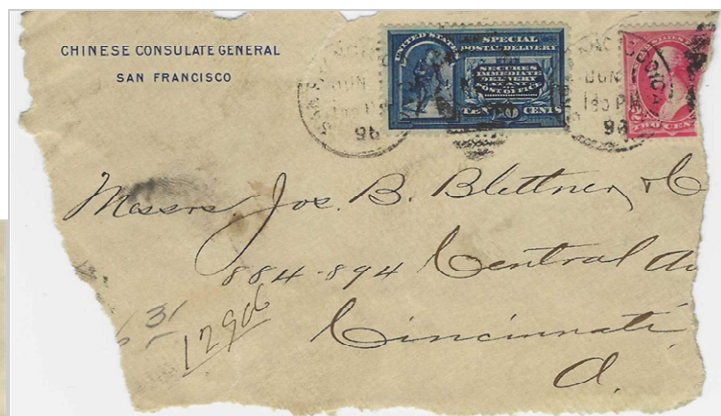 CHINESE CONSULATE GENERAL
SAN FRANCISCO
UNITED STATES
SPECIAL
POSTAL DELIVERY
SECURES
IMMEDIATE
DELIVERY
AT ANY
POST OFFICE
TEN 10 CENTS
TWO CEN
JUN
1 30 P
96
JUN
1 30 P
96
Messrs Jos. B. Blettner & C
884-894 Central Av
Cincinnati
O.
31
12906